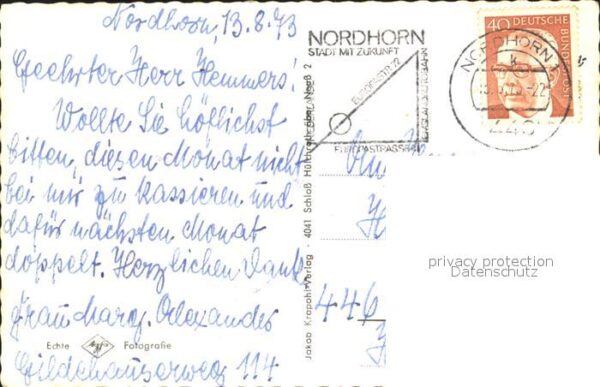 Nordhorn, 13.8.73
Geehrter Herr Hemmers!
Wollte Sie höflichst
bitten, diesen Monat nicht
bei mir zu kassieren und
dafür nächsten Monat
doppelt. Herzlichen Dank
Frau Marg. Alexandes
Gildehauserweg 114
Echte Agfa Fotografie
Jakob Krapohl-Verlag · 4041 Schloß Hülchrath über Neuß 2
NORDHORN
STADT MIT ZUKUNFT
EUROPASTR.
EUROPASTRASSE
40 DEUTSCHE BUNDESPOST
NORDHORN
An
H
446
privacy protection
Datenschutz